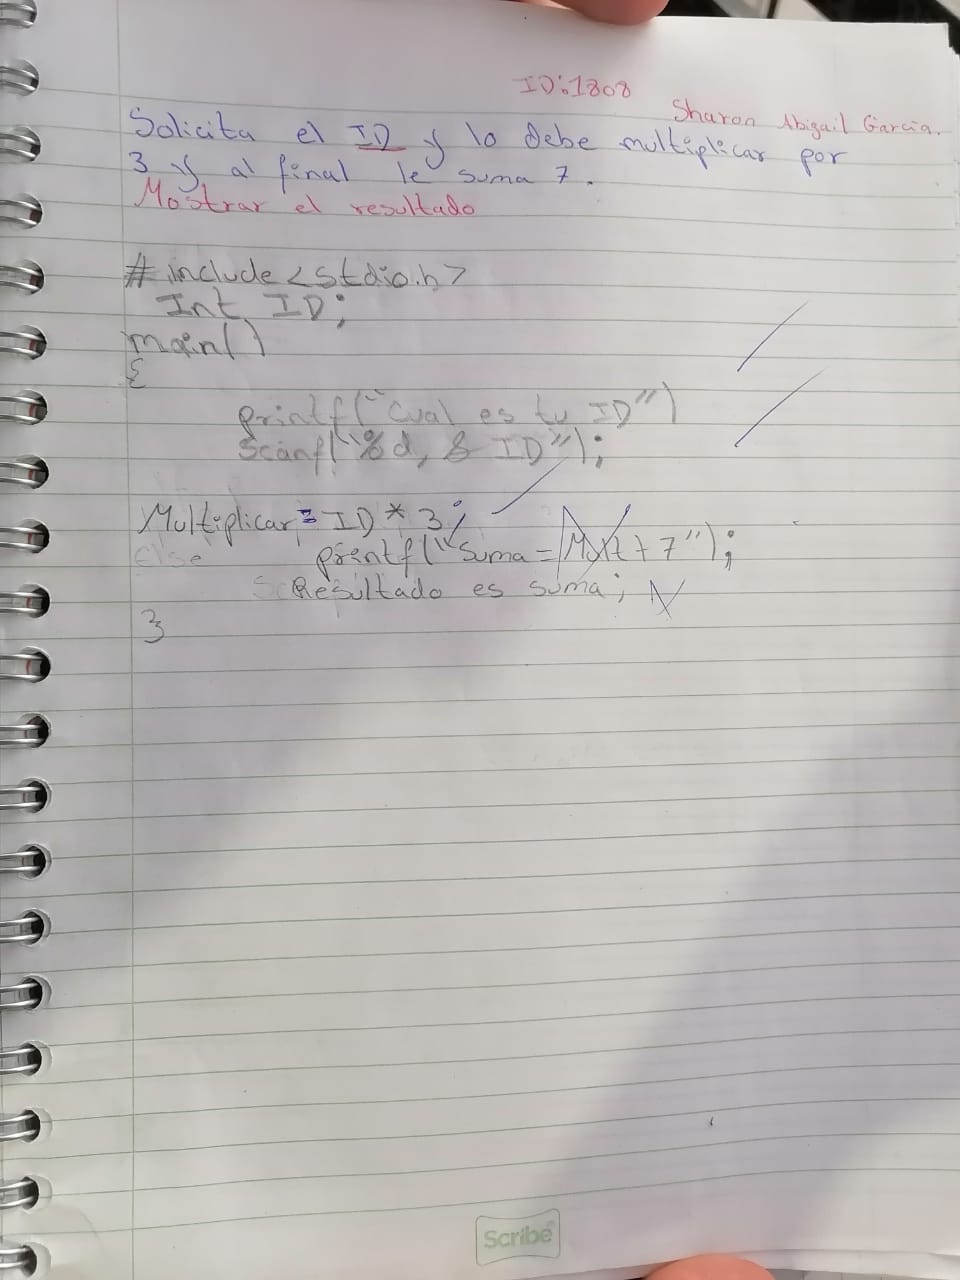 ID:1808
Sharon Abigail Garcia.
Solicita el ID y lo debe multiplicar por
3 y al final le suma 7.
Mostrar el resultado
# include <stdio.h>
Int ID;
main()
{
printf("Cual es tu ID")
Scanf("%d, & ID");
Multiplicar = ID * 3;
else printf("Suma = Mult + 7");
Resultado es suma;
}
Scribe